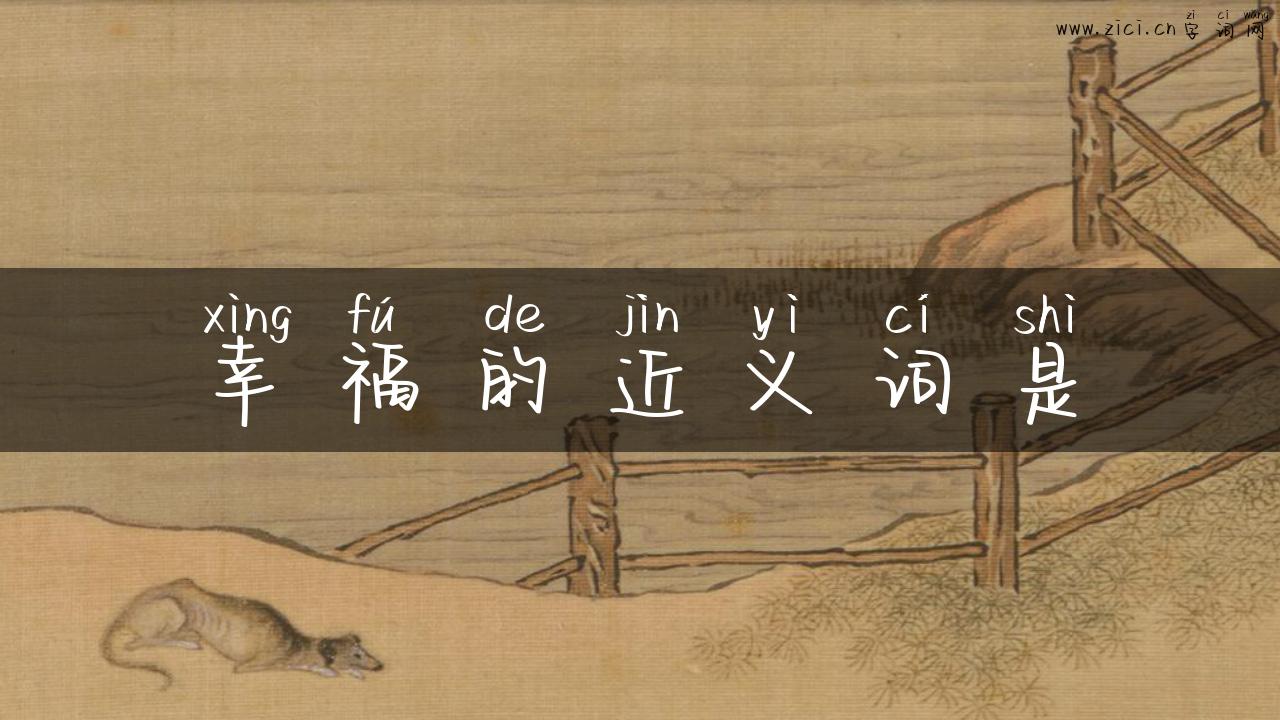 zì cí wǎng
www.zici.cn 字词网
xìng fú de jìn yì cí shì
幸福的近义词是